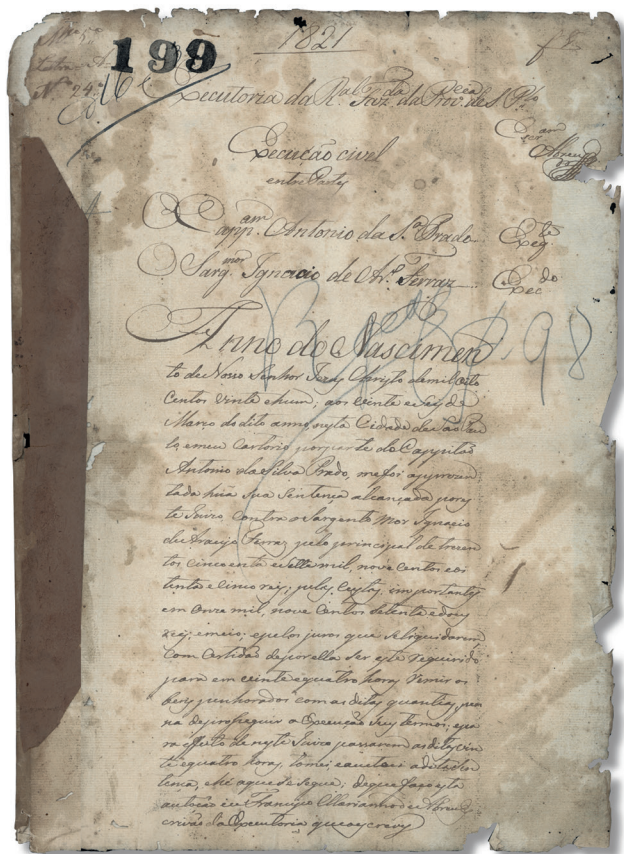 199
1821
Nº 24
Executoria da Ral Faz.da da Prov.cia de S. Plo
Escr.am
Abreu
Execução civel
entre Partes
O Capp.am Antonio da S.a Prado Exeq.te
O Sarg.mor Ignacio de Ar.o Ferraz Exec.do
98
Anno do Nascimen
to de Nosso Senhor Jezus Christo de mil oito
Centos vinte e hum; aos vinte e seis de
Março do dito anno nesta Cidade de São Pau
lo e meu Cartorio por parte do Cappitão
Antonio da Silva Prado, me foi aprezen
tada húa sua Sentença alcançada por es
te Juizo contra o Sargento Mor Ignacio
de Araujo Ferraz pelo principal de trezen
tos cincoenta e sette mil, nove centos e oi
tenta e cinco reis; pelas Custas, importantes
em onze mil, nove Centos setenta e dous
reis, e meio; e pelos juros que se liquidarem
com Certidão de por ella ser este requirido
para em vinte e quatro horas remir os
bens penhorados com as ditas quantias, pe
na de proseguir a Execução seus termos; e pa
ra effeito de neste Juizo passarem as ditas vin
te e quatro horas, tomei e autuei a dita Sen
tença, e hé a que se segue; de que faço esta
autoação eu Francisco Marianno de Abreu Es
crivão da Executoria que o escrevy